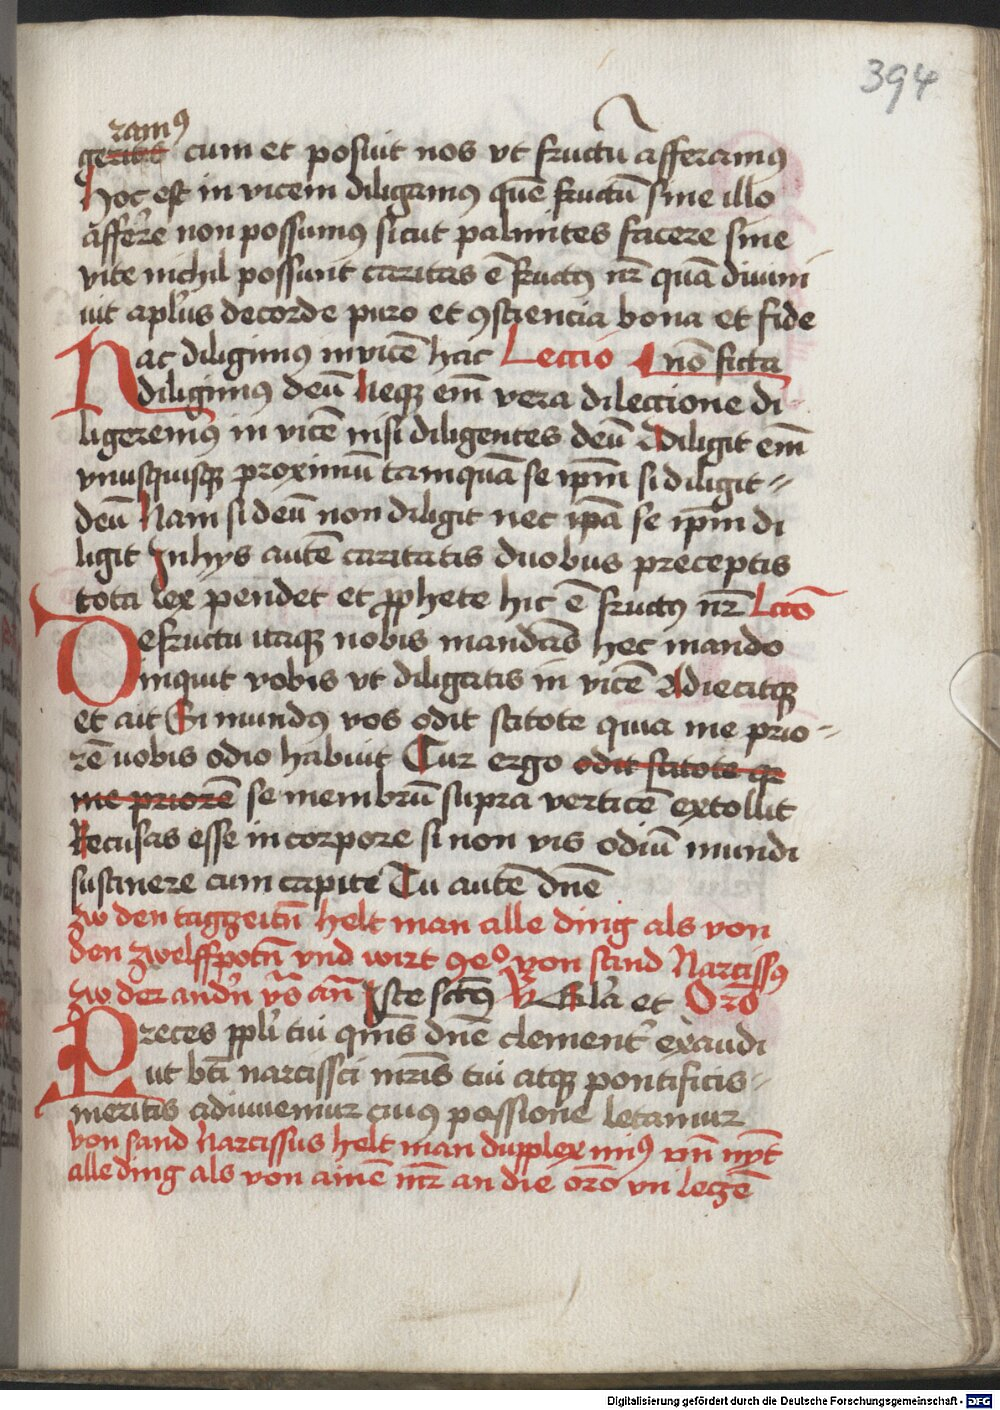 394
ramꝰ
geritis cum et posuit nos vt fructū afferamus
Hoc est in vicem diligamꝰ quē fructū sine illo
affer̄e non possumꝰ sicut palmites facere sine
vite nichil possunt caritas ē fructꝰ nr̄ quā diuini
uit apl'us decorde puro et ꝯsciencia bona et fide
Hac diligimꝰ invicē hac Leccio nō ficta
diligimꝰ deū Neqꝫ em̄ vera dileccione di
ligeremꝰ in vicē nisi diligentes deū Diligit em̄
vnusquisqꝫ proximū tamquā se ip̄m si diligit
deū Nam si deū non diligit nec ip̄a se ip̄m di
ligit Inhys autē caritatis duobus preceptis
tota lex pendet et ꝓphete hic ē fructꝰ nr̄ Lccō
De fructu itaqꝫ nobis mandās hec mando
inquit vobis vt diligatis in vicē Adiecitqꝫ
et ait Si mundꝰ vos odit scitote quia me prio
rē uobis odio habuit Cur ergo odit scitote qꝛ
me priorē se membrū supra verticē extollit
Recusas esse in corpore si non vis odiū mundi
sustinere cum capite Tu autē dn̄e
zw den taggzeitn̄ helt man alle ding als von
den zwelffpotn̄ vnd wirt ꝯeo von sand Narcissꝰ
zw der andn̄ vs̄ an̄ Iste sctꝰ V̄ Gl'a et Orō
Preces ppl'i tui qm̄s dn̄e clementʼ exaudi
ut bt̄i narcissci mr̄is tui atqꝫ pontificis
meritis adiuuemur cuiꝰ passione letamur
von sand Narcissus helt man dupplex miꝰ vn̄ nyt̄
alle ding als von ainē mr̄ an die orō vn leczē
Digitalisierung gefördert durch die Deutsche Forschungsgemeinschaft - DFG